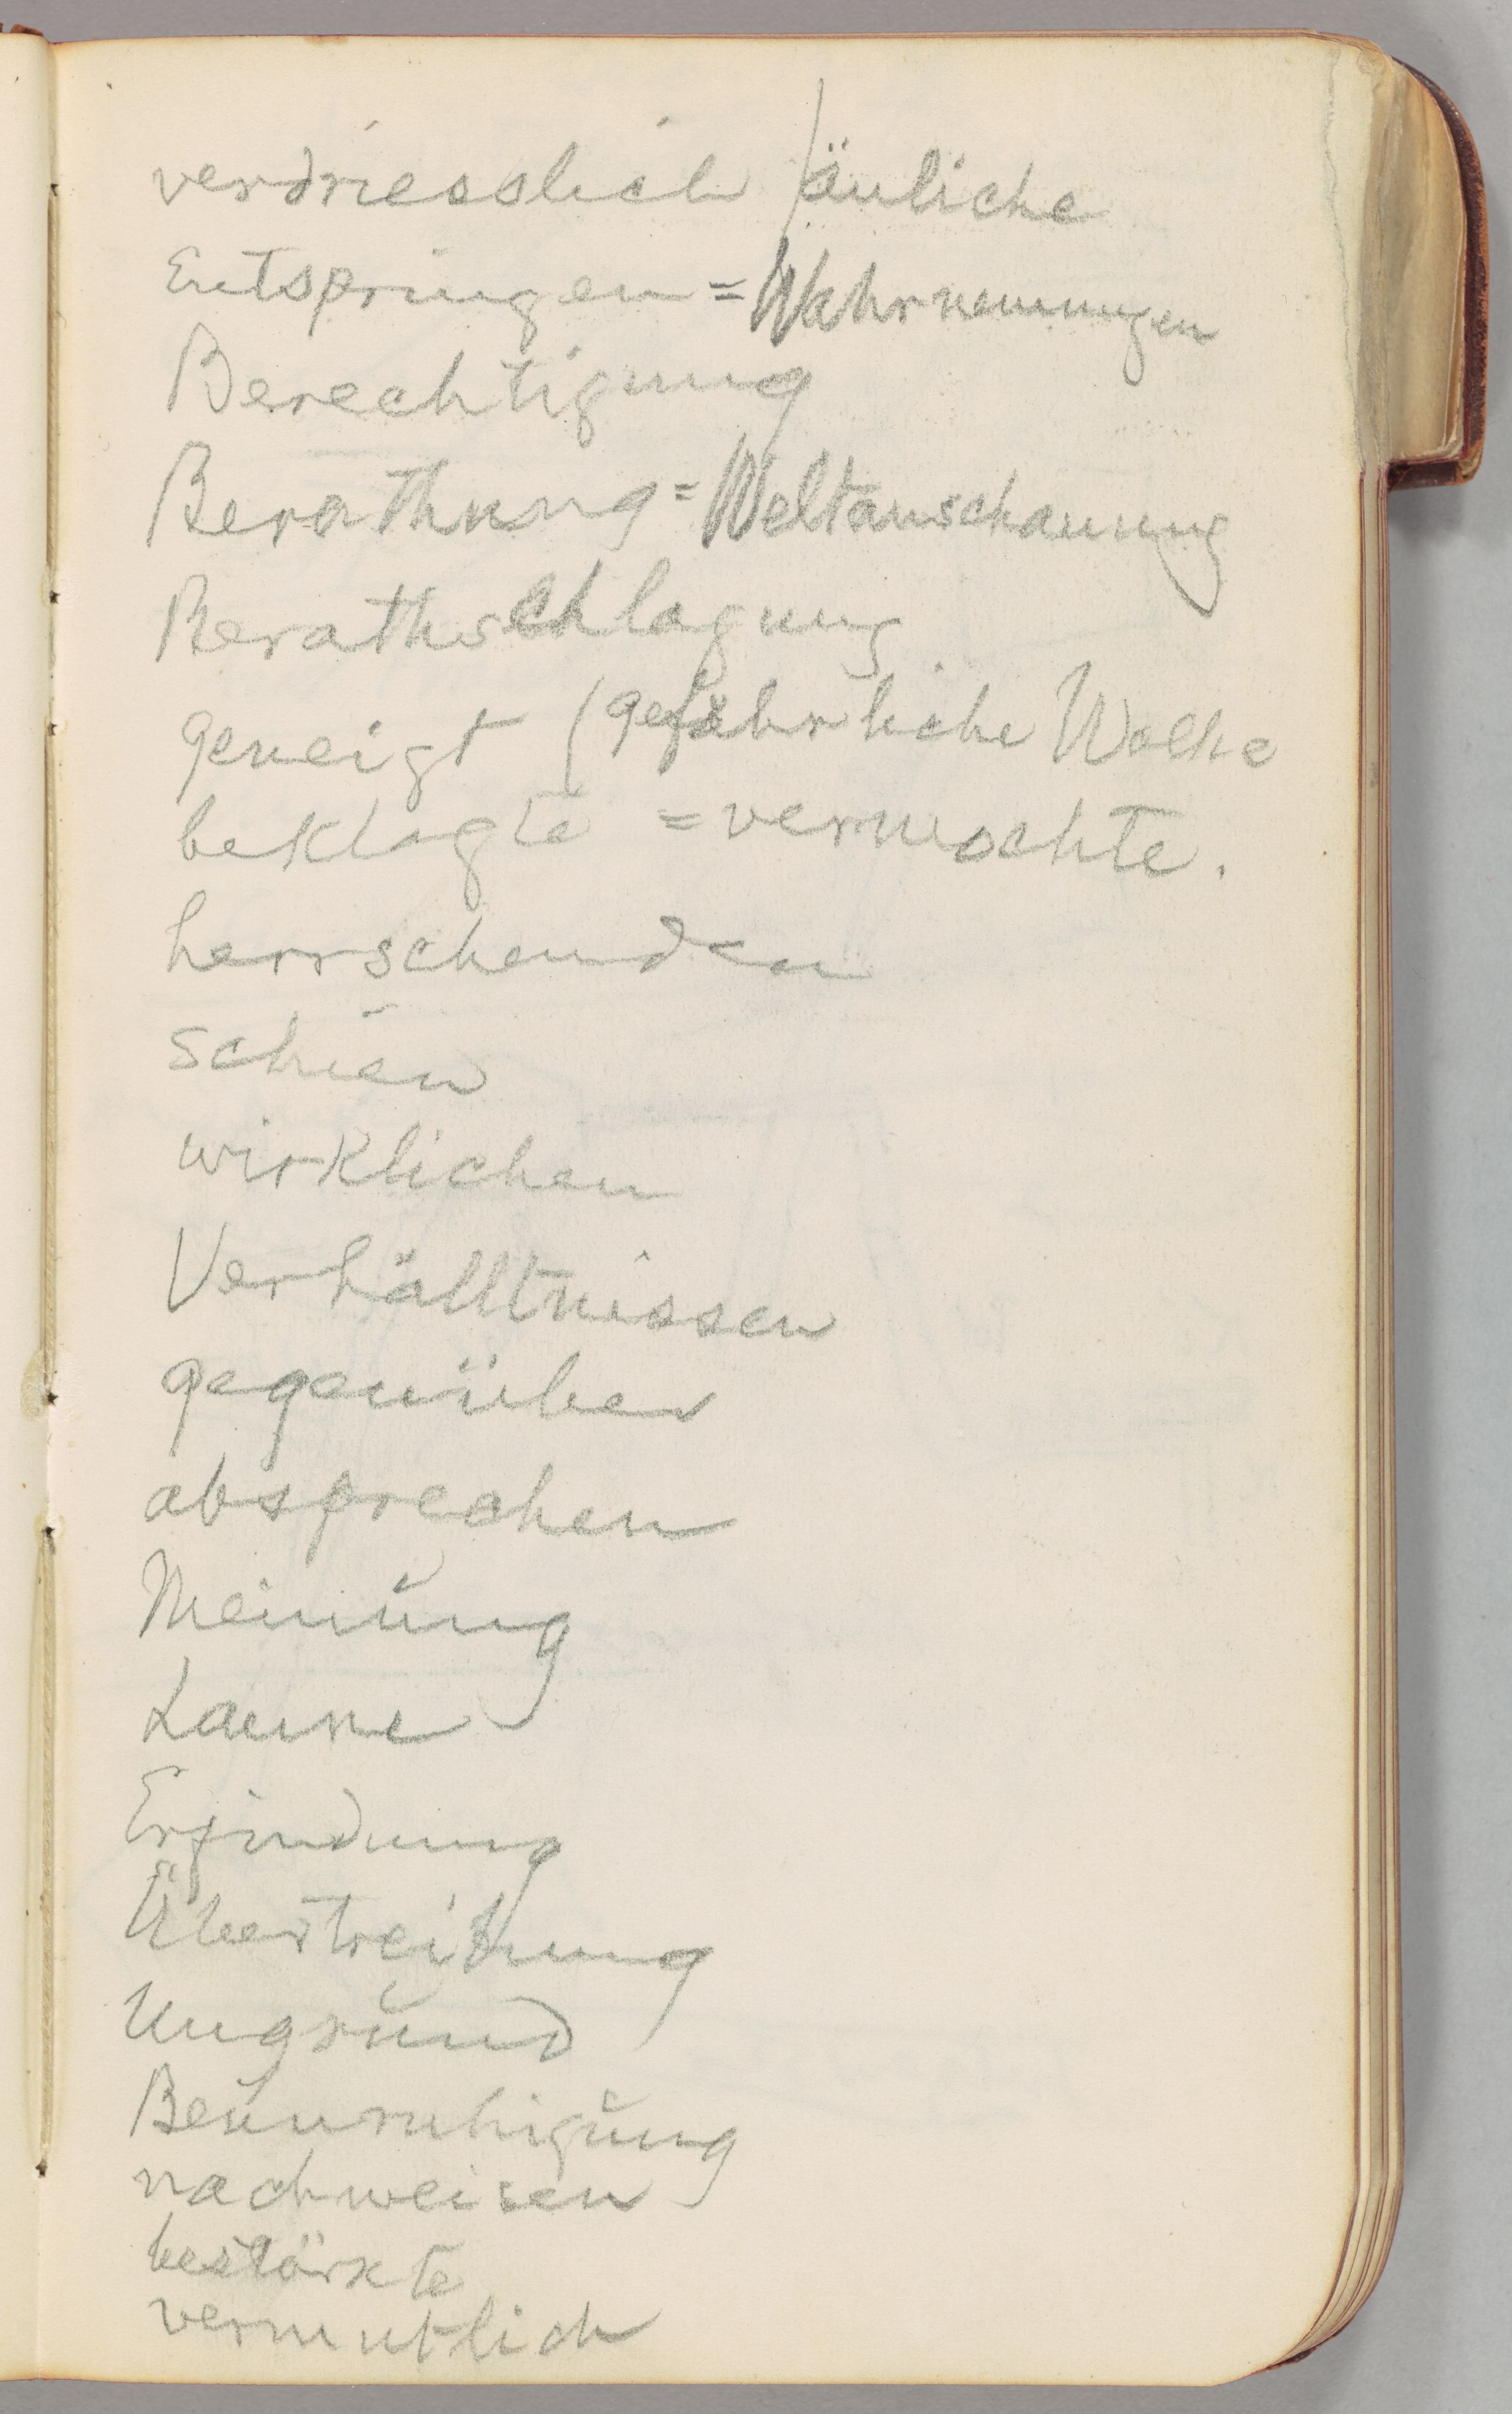 verdriesslich / äuliche
Entspringen = Wahrnemungen
Berechtigung
Berathung = Weltanschauung
Berathschlagung
geneigt (gefährliche Wolke
beklagte = vermochte.
herrschenden
schien
wirklichen
Verhälltnissen
gegenüber
absprechen
Meinung
Laune
Erfindung
Übertreibung
Ungrund
Beunruhigung
nachweisen
bestärkte
vermutlich